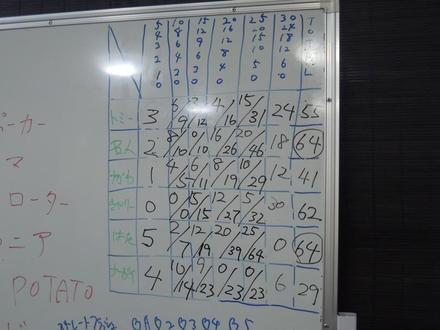 5 10 15 20 25 30 T
4 8 12 16 20 24 O
3 6 9 12 15 18 T
2 4 6 8 10 12 A
1 2 3 4 5 6 L
0 0 0 0 0 0
トミー 3 6/9 3/12 4/16 15/31 24 55
2 8/10 0/10 16/26 20/46 18 64
1 4/5 6/11 8/19 10/29 12 41
0 0/0 15/15 12/27 5/32 30 62
はた 5 2/7 12/19 20/39 25/64 0 64
4 10/14 9/23 0/23 0/23 6 29
ーカー
マ
ローター
ニア
POTATO